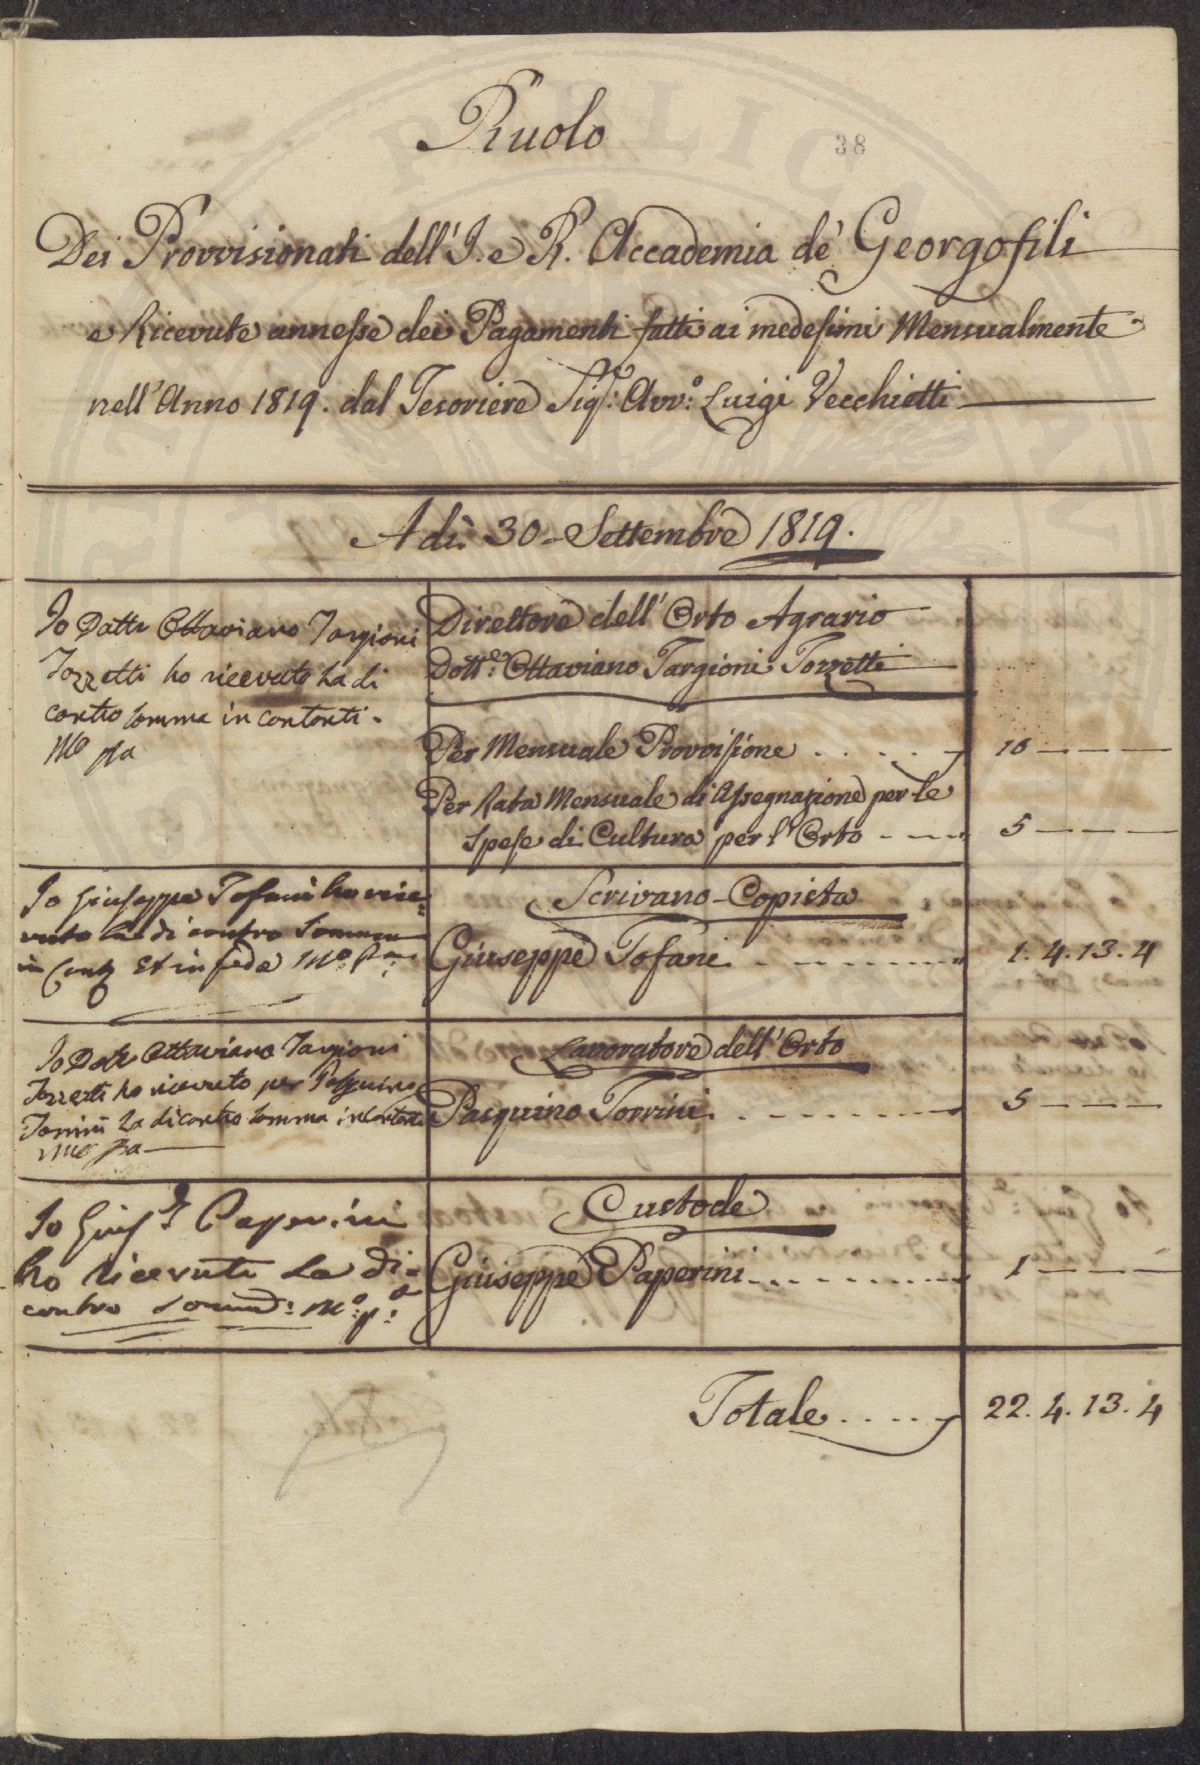 Ruolo
38
Dei Provvisionati dell'I. e R. Accademia de' Georgofili
e Ricevute annesse dei Pagamenti fatti ai medesimi Mensualmente
nell'Anno 1819. dal Tesoriere Sig.r: Avv:o Luigi Vecchietti
A dì. 30 - Settembre 1819.
Io Dattr Ottaviano Targioni
Tozzetti ho ricevuto la di
contro somma in contanti.
Mo ppa
Direttore dell'Orto Agrario
Dott.e Ottaviano Targioni Tozzetti
Per Mensuale Provvisione . . . . . 10 — — —
Per Rata Mensuale di Assegnazione per le
Spese di Cultura per l'Orto - - - - 5 — — —
Io Giuseppe Tofani ho rice=
vuto la di contro Somma
in Cont. Et in fede Mo. Pa:
Scrivano-Copista
Giuseppe Tofani. - - - - - - - 1. 4. 13. 4
Io Dotr Ottaviano Targioni
Tozzetti ho ricevuto per Pasquino
Torrini la di contro somma in contanti
mo ppa
Lavoratore dell'Orto
Pasquino Torrini. - - - - - - - 5 — — —
Io Gius.e Paperini
ho ricevuto La di=
contro Somma: Mo: p:a
Custode
Giuseppe Paperini - - - - - - - 1 — — —
Totale . . . . . 22. 4. 13. 4